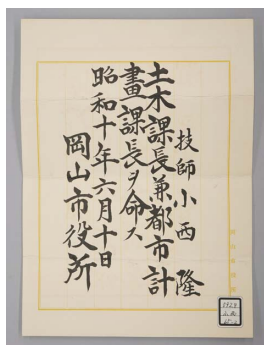 技師小西隆
土木課長兼都市計
畫課長ヲ命ス
昭和十年六月十日
岡山市役所